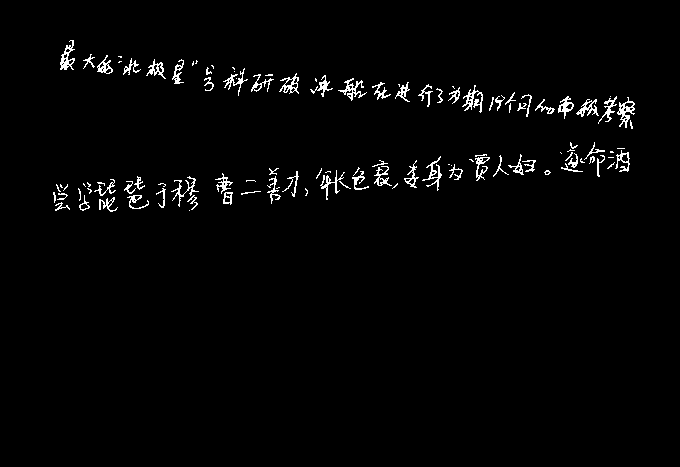 最大的“北极星”号科研破冰船在进行了为期19个月的南极考察
尝学琵琶于穆曹二善才，年长色衰，委身为贾人妇。遂命酒